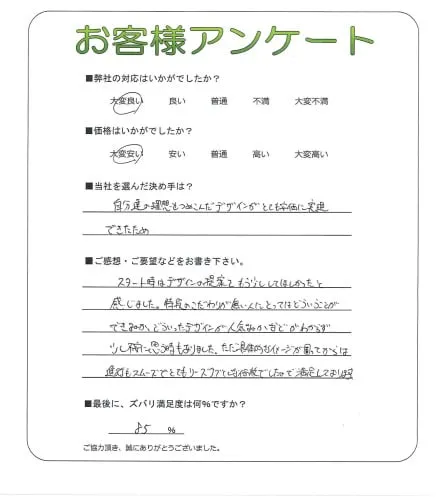 お客様アンケート
■弊社の対応はいかがでしたか?
大変良い 良い 普通 不満 大変不満
■価格はいかがでしたか?
大変安い 安い 普通 高い 大変高い
■当社を選んだ決め手は?
自分達の理想もつめこんだデザインがとても安価に実現
できたため
■ご感想・ご要望などをお書き下さい。
スタート時はデザインの提案をもう少ししてほしかったと
感じました。特段のこだわりが無い人にとってはどういうことが
できるのか、どういったデザインが人気なのかなどがわからず
少し不安に思う時もありました。ただ具体的なイメージが固まってからは
進行もスムーズでとてもリーズナブルなお値段でしたので満足しております
■最後に、ズバリ満足度は何%ですか?
85 %
ご協力頂き、誠にありがとうございました。